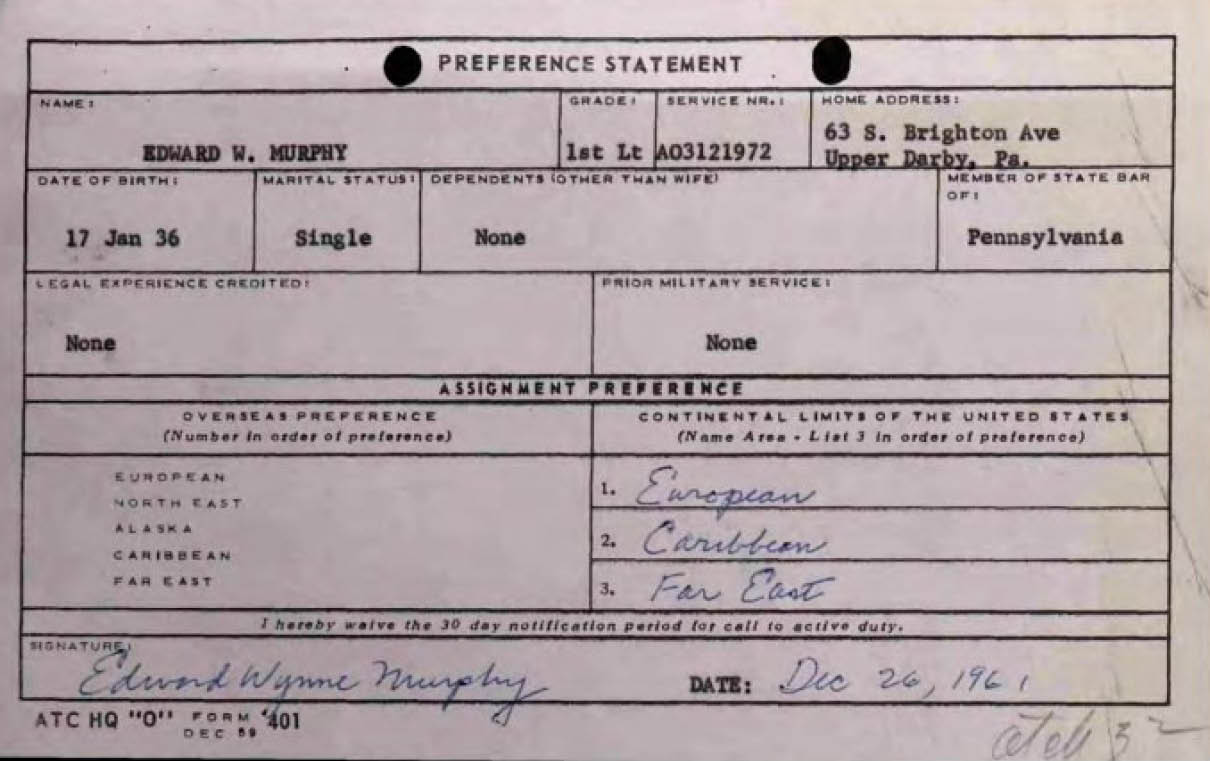 PREFERENCE STATEMENT
NAME: GRADE: SERVICE NR.: HOME ADDRESS:
EDWARD W. MURPHY 1st Lt AO3121972 63 S. Brighton Ave
Upper Darby, Pa.
DATE OF BIRTH: MARITAL STATUS: DEPENDENTS (OTHER THAN WIFE) MEMBER OF STATE BAR
OF:
17 Jan 36 Single None Pennsylvania
LEGAL EXPERIENCE CREDITED: PRIOR MILITARY SERVICE:
None None
ASSIGNMENT PREFERENCE
OVERSEAS PREFERENCE CONTINENTAL LIMITS OF THE UNITED STATES
(Number in order of preference) (Name Area - List 3 in order of preference)
EUROPEAN
NORTH EAST
ALASKA
CARIBBEAN
FAR EAST
1. European
2. Caribbean
3. Far East
I hereby waive the 30 day notification period for call to active duty.
SIGNATURE:
Edward Wynne Murphy DATE: Dec 26, 1961
ATC HQ "O" FORM 401
DEC 59